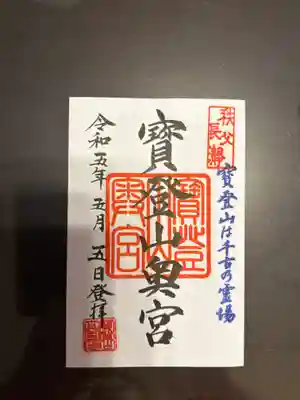 秩父
長瀞
寳登山は千古の霊場
寳登山奥宮
寳登山
奥宮
令和五年五月五日登拝